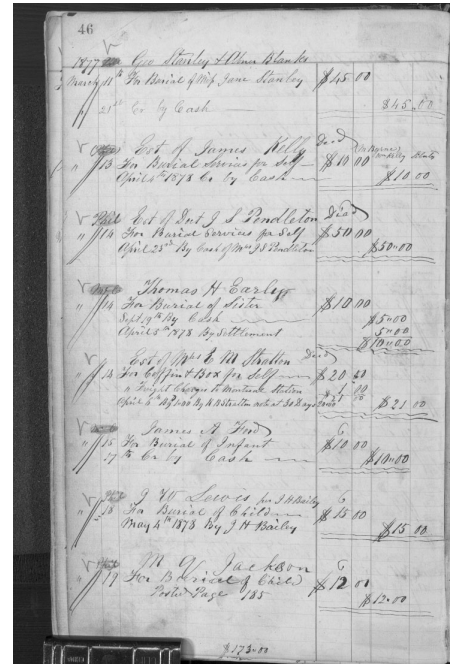 46
1877 Geo Stanley & Blanks
March 11th For Burial of Miss Jane Stanley $45 00
21st Cr by Cash $45.00
Est of James Kelly Dead
" 13 For Burial Services for Self $10 00
April 4th 1878 Cr by Cash $10.00
Est of Doct J S Pendleton Dead
" 14 For Burial Services for Self $50 00
April 25th By Cash of Mrs J S Pendleton $50.00
Thomas H Earley
" 14 For Burial of Sister $10 00
Sept 19th By Cash $5.00
April 5th 1878 By Settlement 5.00
$10.00
Est of Mrs E M Stratton Dead
" 14 For Coffin & Box for Self $20
" Freight Charges to Station 1 00
April 4th By note at 30 Days $21 00
James A Ford
" 15 For Burial of Infant $10 00
17th Cr by Cash $10.00
J W Lewis per J H Bailey
" 18 For Burial of Child $15 00
May 4th 1878 By J H Bailey $15 00
M G Jackson
" 19 For Burial of Child $12 00
Posted Page 185 $12.00
$173.00